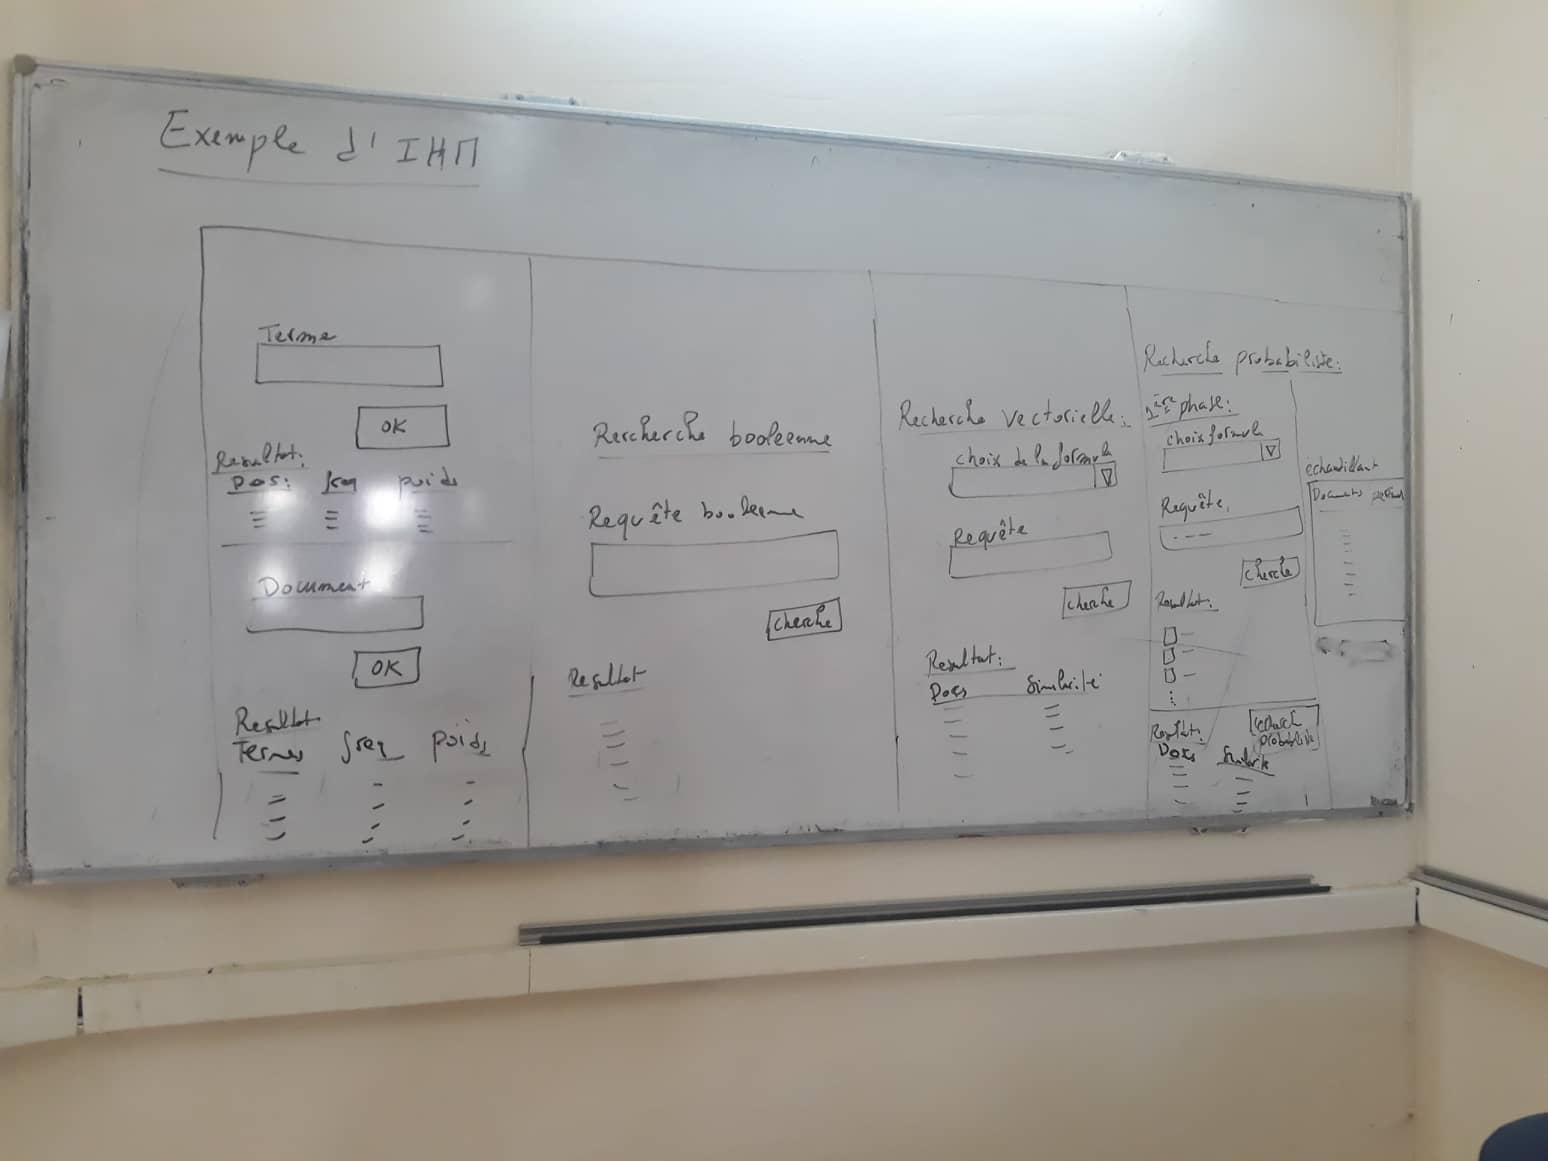 Exemple d'IHM
Terme
OK
Resultat:
Docs: freq poids
Document
OK
Resultat
Termes freq poids
Rercherche booleenne
Requête booleenne
cherche
Resultat
Recherche vectorielle:
choix de la formule
Requête
cherche
Resultat:
Docs Similarité
Recherche probabiliste:
1ère phase:
choix formule
Requête
cherche
Resultat:
recherche
probabiliste
Resultat:
Docs Similarité
échantillant
Documents